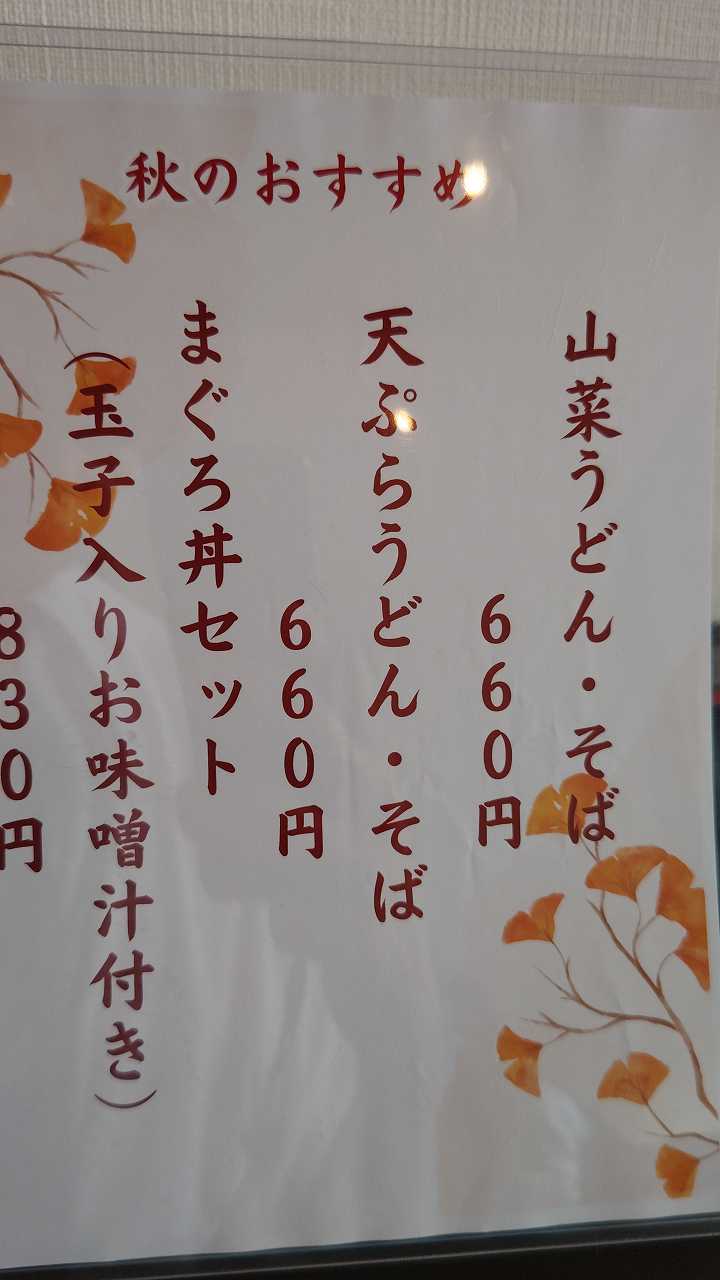 秋のおすすめ
山菜うどん・そば
660円
天ぷらうどん・そば
660円
まぐろ丼セット
(玉子入りお味噌汁付き)
830円